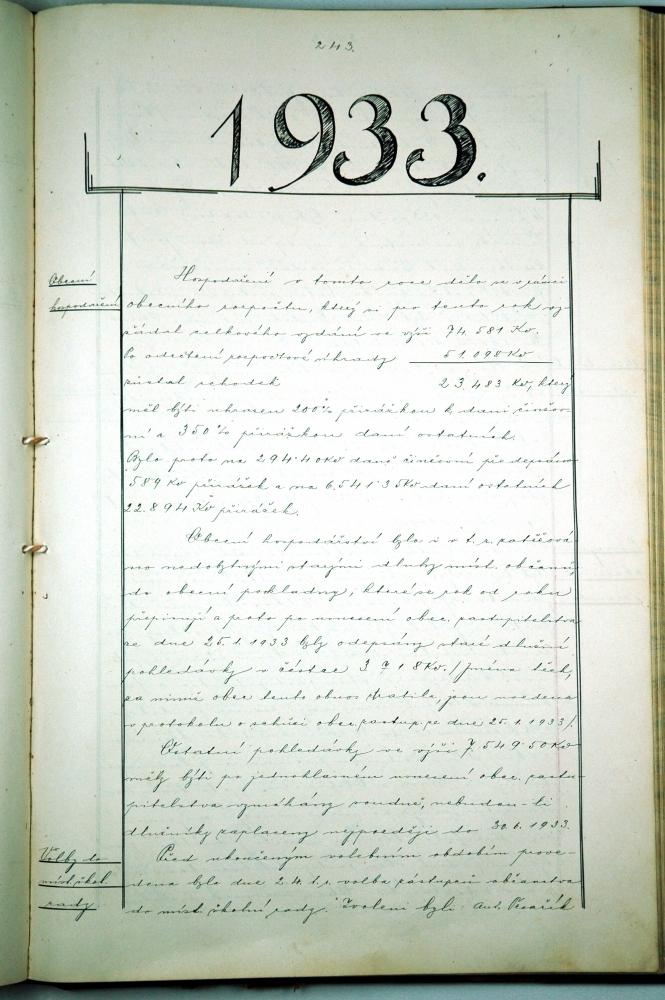 243.
1933.
Obecní
hospodaření
Hospodaření v tomto roce dělo se v rámci
obecního rozpočtu, který si pro tento rok vy-
žádal celkového vydání ve výši 74.581 Kč.
Po odečtení rozpočtové úhrady 51.098 Kč
zůstal schodek 23.483 Kč, který
měl býti uhrazen 200% přirážkou k dani činžov-
ní a 350% přirážkou daní ostatních.
Bylo proto na 294.40 Kč daně činžovní předepsáno
589 Kč přirážek a na 6.541.35 Kč daní ostatních
22.894 Kč přirážek.
Obecní hospodářství bylo i v t. r. zatěžová-
no nedobytnými starými dluhy míst. občanů,
do obecní pokladny, které se rok od roku
přepisují a proto po usnesení obec. zastupitelstva
ze dne 25.1.1933 byly odepsány staré dlužné
pohledávky v částce 3.918 Kč. /Jména těch,
za nimiž obec tento obnos ztratila, jsou uvedena
v protokolu o schůzi obec. zastup. ze dne 25.1.1933/.
Ostatní pohledávky ve výši 7.549.50 Kč
měly býti po jednohlasném usnesení obec. zastu-
pitelstva vymáhány soudně, nebudou-li
dlužníky zaplaceny nejpozději do 30.6.1933.
Volby do
míst. škol.
rady.
Před ukončeným volebním obdobím prove-
dena byla dne 2.4. t. r. volba zástupců občanstva
do míst. školní rady. Zvoleni byli: Ant.